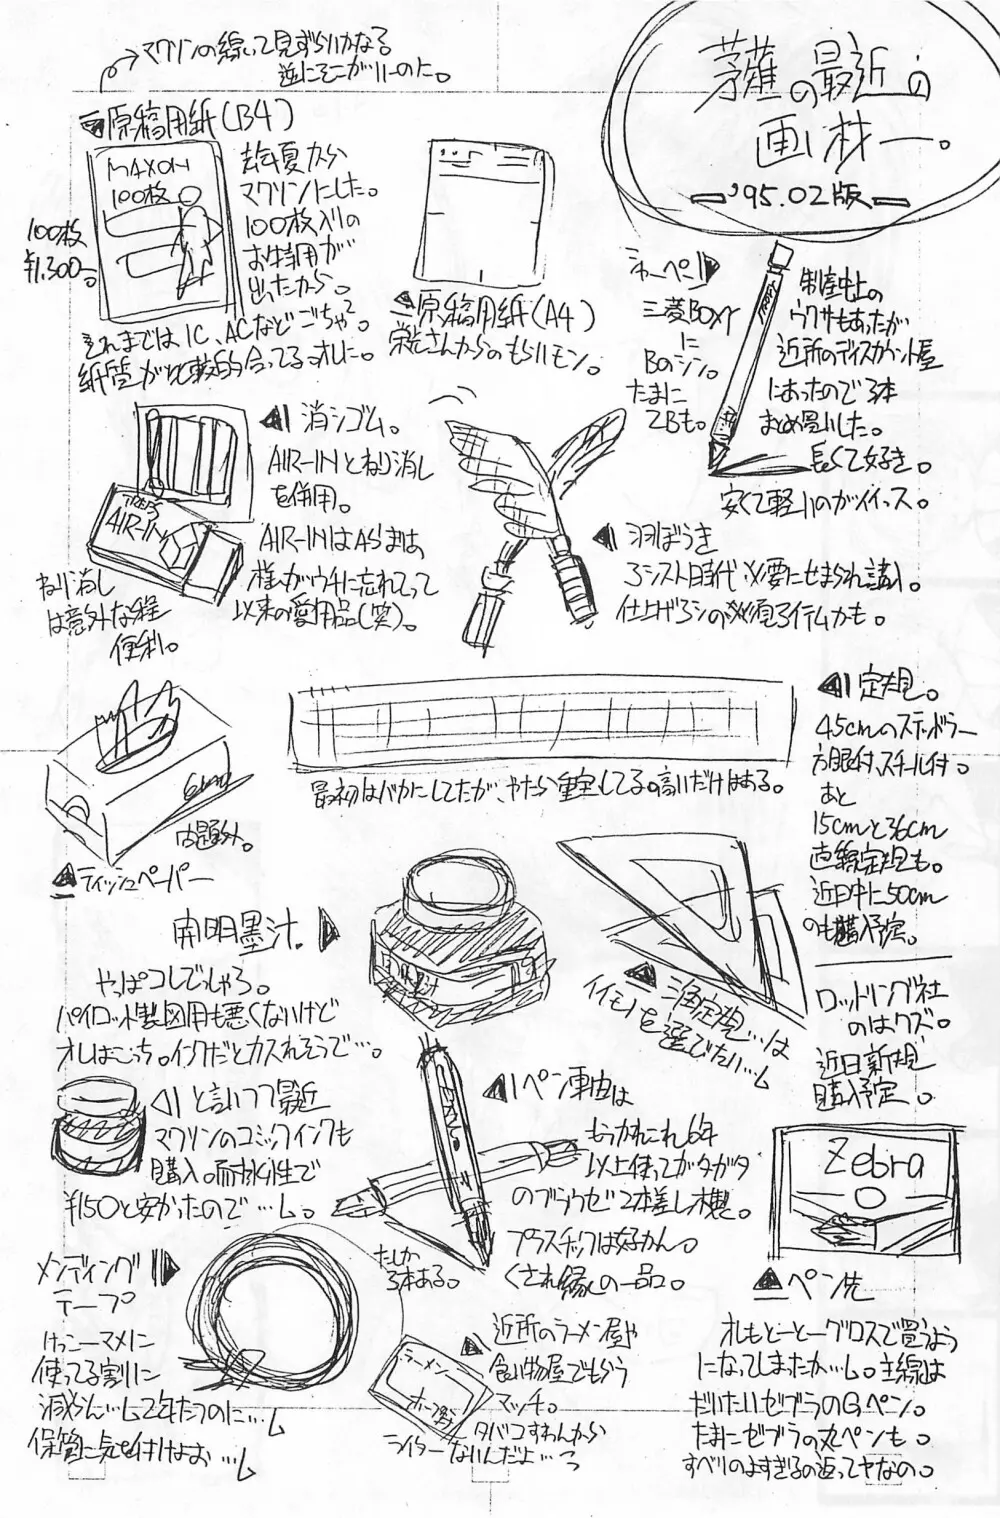 マクソンの線って見ずらいかなる
逆にそこがいーのに。
茅薙の最近の
画材ー。
'95.02版
原稿用紙(B4)
MAXON
100枚
100枚
¥1,300
去年夏から
マクソンにした。
100枚入りの
お特用が
出ったから。
それまでは IC、ACなどごちゃ²。
紙質が比較的合ってるオレに。
原稿用紙(A4)
栄光さんからのもらいモン。
シャーペン
三菱BOXY
に
Bのシン。
たまに
2Bも。
制図中上の
ヴクサもあったが
近所のディスカウント屋
にあったので3本
まとめ買いした。
長くて好き。
安くて軽いのがイイッス。
消シゴム。
AIR-INとねり消し
を併用。
AIR-INはASまは
様がウチに忘れてって
以来の愛用品(笑)。
AIR-IN
ねり消し
は意外な程
便利。
羽ぼうき
アシスト時代必要にせまられ購入。
仕上げアシの必須アイテムかも。
定規。
45cmのステンボラー
方眼付、スチール付。
あと
15cmと36cm
直線定規も。
近日中に50cm
のも購入予定。
最初はバカにしてたが、やたら重宝してる。高いだけはある。
問題外。
ティッシュペーパー
開明墨汁。
やっぱコレでっしゃろ。
パイロット製図用も悪くないけど
オレはこっち。インクだとカスれそうで…。
三角定規…は
イイモノを選びたい…し
ロットリング社
のはクズ。
近日新規
購入予定。
と言いつつ最近
マクソンのコミックインクも
購入。耐水性で
¥150と安かったので…し。
ペン軸は
もうかれこれ6年
以上使ってガタガタ
のブラウゼ2本差し木製。
プラスチックは好かん。
くされ縁の一品。
たしか
3本ある。
Zebra
ペン先
オレもとーとーグロスで買うよう
になってしまたか…し。主線は
だいたいゼブラのGペン。
たまにゼブラの丸ペンも。
すべりのよすぎるの返ってヤなの。
メンディング
テープ
けっこーマメに
使ってる割に
減らん…し2年たつのに…し
保管に気を付けよお…し
近所のラーメン屋や
食い物屋でもらう
マッチ。
タバコすわんから
ライターないんだよ…っ
ラーメン